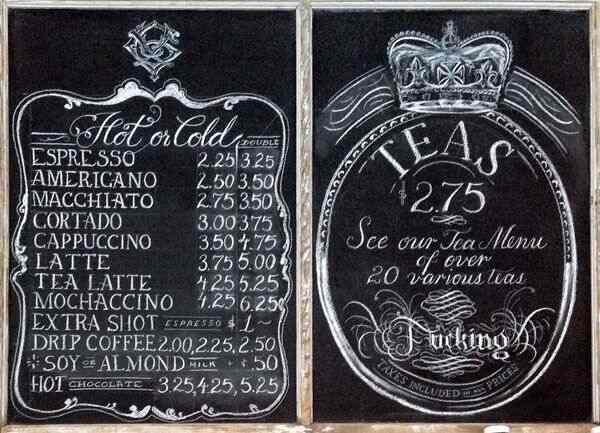 Hot or Cold
DOUBLE
ESPRESSO 2.25 3.25
AMERICANO 2.50 3.50
MACCHIATO 2.75 3.50
CORTADO 3.00 3.75
CAPPUCCINO 3.50 4.75
LATTE 3.75 5.00
TEA LATTE 4.25 5.25
MOCHACCINO 4.25 6.25
EXTRA SHOT ESPRESSO $1~
DRIP COFFEE 2.00, 2.25, 2.50
SOY OR ALMOND MILK + $.50
HOT CHOCOLATE 3.25, 4.25, 5.25
TEAS
$2.75
See our Tea Menu
of over
20 various teas
Fucking
TAXES INCLUDED IN ALL PRICES